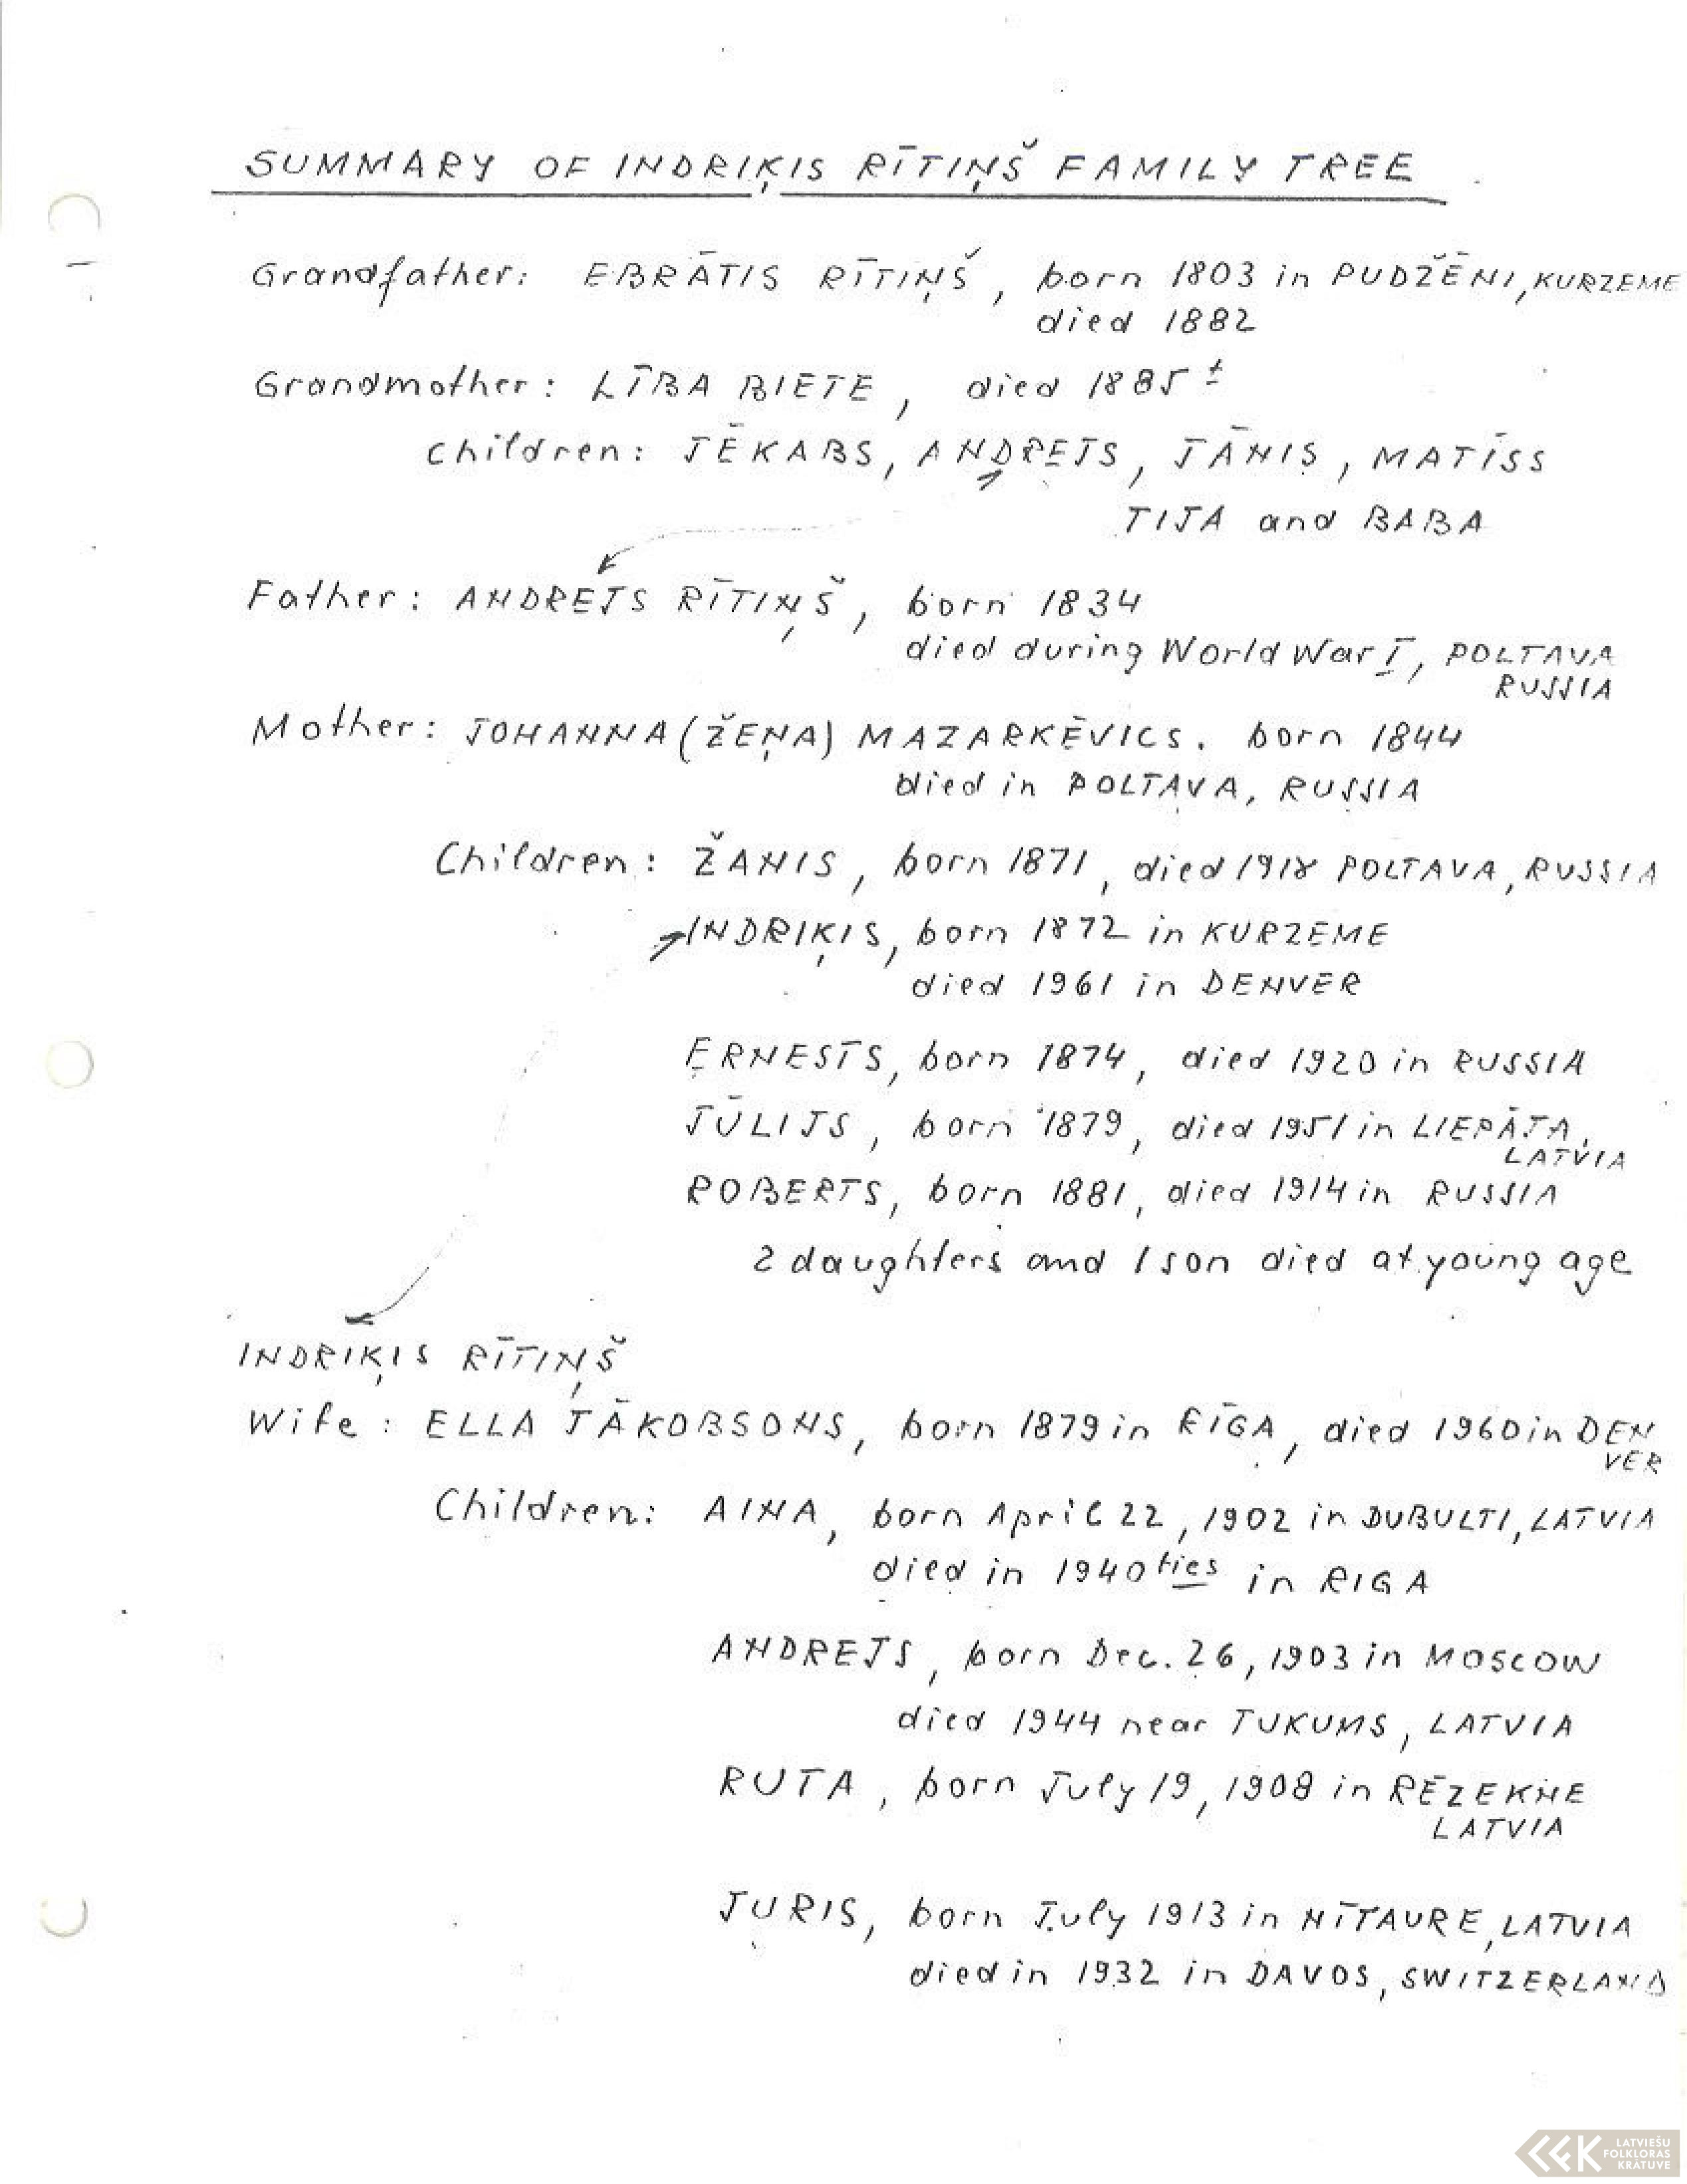 SUMMARY OF INDRIĶIS RĪTIŅŠ FAMILY TREE
Grandfather: EBRĀTIS RĪTIŅŠ, born 1803 in PUDŽĒNI, KURZEME
died 1882
Grandmother: LĪBA BIETE, died 1885 ±
children: JĒKABS, ANDREJS, JĀNIS, MATĪSS
TIJA and BABA
Father: ANDREJS RĪTIŅŠ, born 1834
died during World War I, POLTAVA
RUSSIA
Mother: JOHANNA (ŽEŅA) MAZARKĒVICS. born 1844
died in POLTAVA, RUSSIA
Children: ŽANIS, born 1871, died 1918 POLTAVA, RUSSIA
INDRIĶIS, born 1872 in KURZEME
died 1961 in DENVER
ERNESTS, born 1874, died 1920 in RUSSIA
JŪLIJS, born 1879, died 1951 in LIEPĀJA,
LATVIA
ROBERTS, born 1881, died 1914 in RUSSIA
2 daughters and 1 son died at young age
INDRIĶIS RĪTIŅŠ
Wife: ELLA JĀKOBSONS, born 1879 in RĪGA, died 1960 in DEN
VER
Children: AINA, born April 22, 1902 in DUBULTI, LATVIA
died in 1940ties in RIGA
ANDREJS, born Dec. 26, 1903 in MOSCOW
died 1944 near TUKUMS, LATVIA
RUTA, born July 19, 1908 in RĒZEKNE
LATVIA
JURIS, born July 1913 in NĪTAURE, LATVIA
died in 1932 in DAVOS, SWITZERLAND
LATVIEŠU
FOLKLORAS
KRĀTUVE